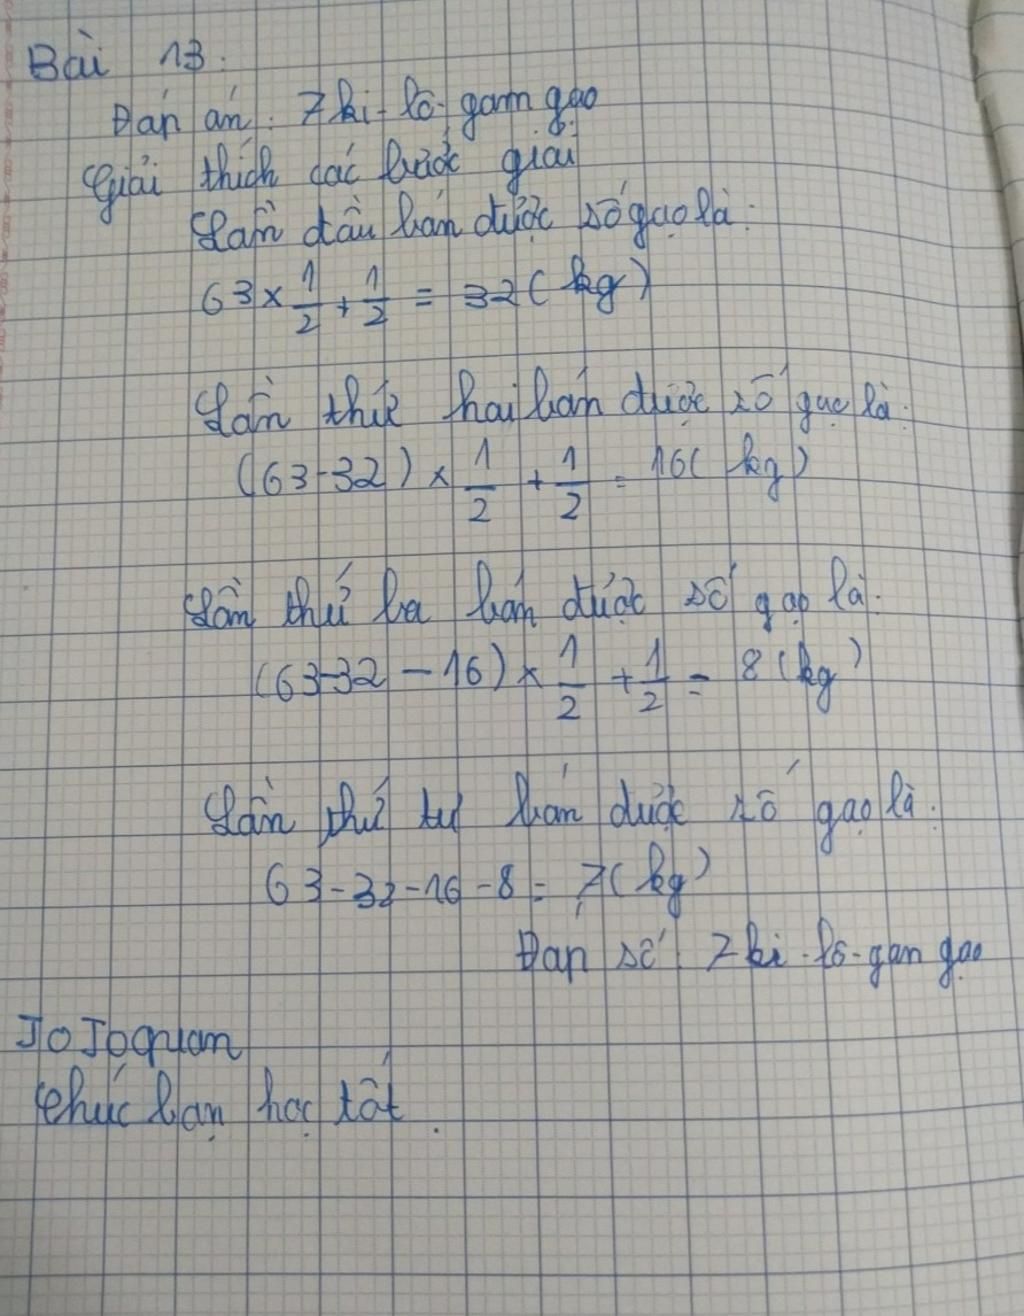 Bài 13:
Đáp án: 7 ki-lô-gam gạo
Giải thích các bước giải
Lần đầu bán được số gạo là:
63 × 1/2 + 1/2 = 32 (kg)
Lần thứ hai bán được số gạo là:
(63-32) × 1/2 + 1/2 = 16 (kg)
Lần thứ ba bán được số gạo là:
(63-32-16) × 1/2 + 1/2 = 8 (kg)
Lần thứ tư bán được số gạo là:
63-32-16-8 = 7 (kg)
Đáp số: 7 ki-lô-gam gạo
JoJoquam
Chúc bạn học tốt.